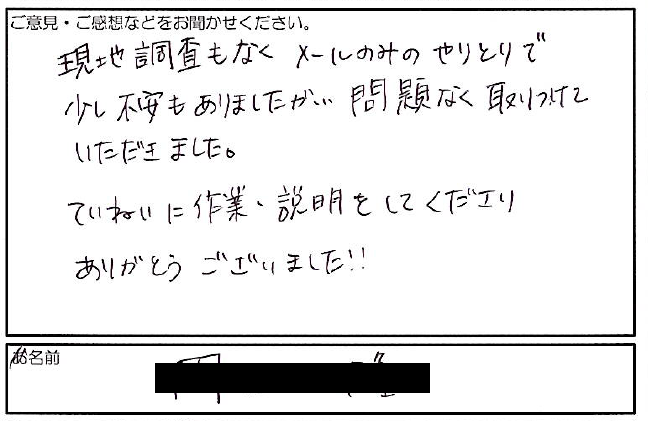 ご意見・ご感想などをお聞かせください。
現地調査もなく メールのみの やりとりで
少し不安もありましたが… 問題なく取りつけて
いただきました。
ていねいに作業、説明をしてくださり
ありがとう ございました!!
お名前